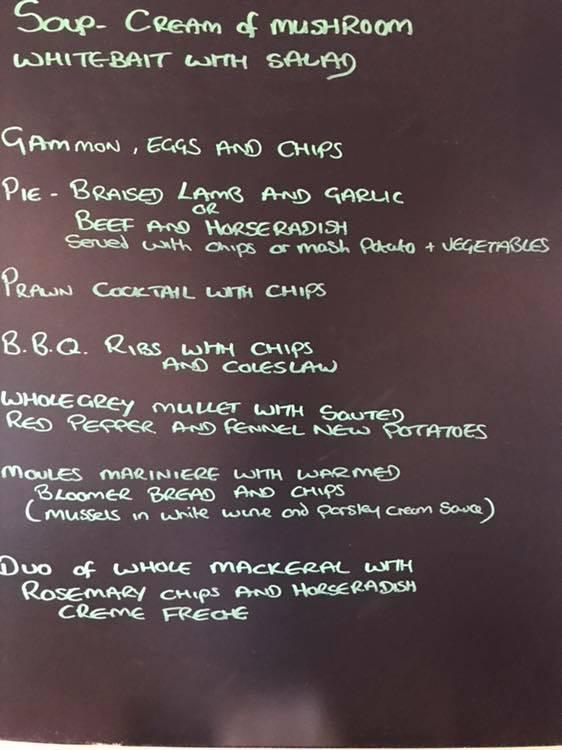 SOUP- CREAM of MUSHROOM
WHITEBAIT WITH SALAD
GAMMON, EGGS AND CHIPS
PIE - BRAISED LAMB AND GARLIC
OR
BEEF AND HORSERADISH
Served with chips or mash Potato + VEGETABLES
PRAWN COCKTAIL WITH CHIPS
B.B.Q. RIBS WITH CHIPS
AND COLESLAW
WHOLE GREY MULLET WITH SAUTED
RED PEPPER AND FENNEL NEW POTATOES
MOULES MARINIERE WITH WARMED
BLOOMER BREAD AND CHIPS
(mussels in white wine and parsley cream sauce)
DUO of WHOLE MACKERAL WITH
ROSEMARY CHIPS AND HORSERADISH
CREME FRECHE